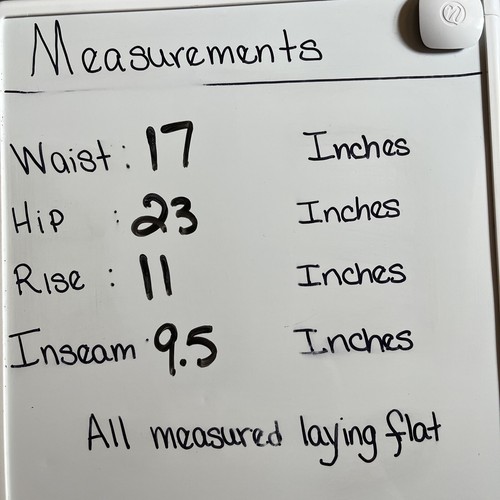 Measurements
Waist: 17 Inches
Hip : 23 Inches
Rise : 11 Inches
Inseam 9.5 Inches
All measured laying flat